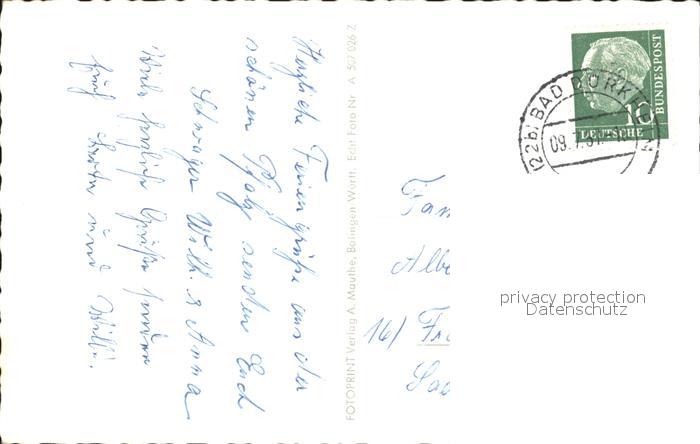 Herzliche Feriengrüße aus der
schönen Pfalz senden Euch
Schwager Willi & Anna
Viele herzliche Grüße senden
und Willi.
FOTOPRINT Verlag A. Mauthe, Balingen Württ. Echt Foto Nr A 5/7 026 Z
Fam
Albe
16)
DEUTSCHE
BUNDESPOST
10
(22b) BAD DÜRK
09.7.
privacy protection
Datenschutz